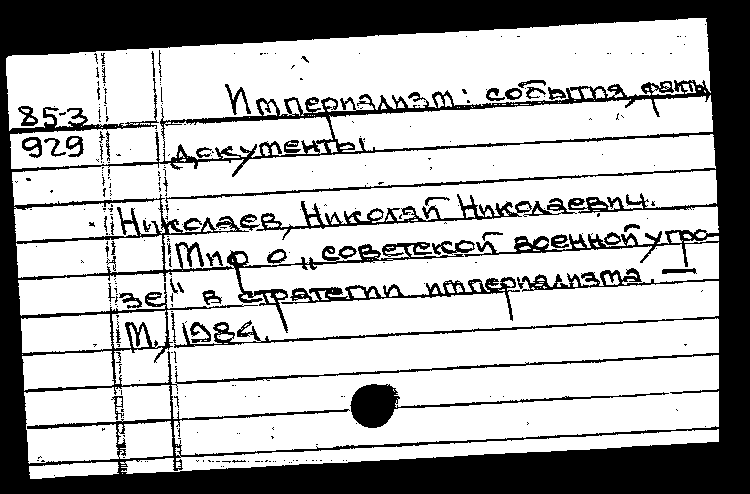 Империализм: события, факты,
85-3
929
документы.
Николаев, Николай Николаевич.
Миф о „советской военной угро-
зе" в стратегии империализма. —
М., 1984.